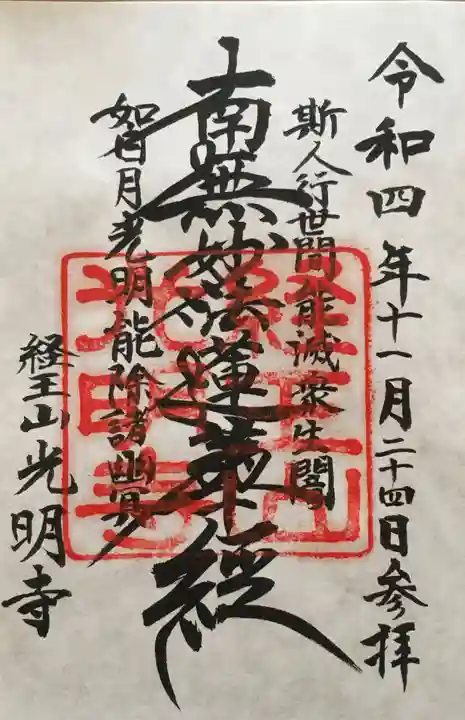 令和四年十一月二十四日参拝
斯人行世間能滅衆生闇
南無妙法蓮華経
如日月光明能除諸幽冥
経王山光明寺
経王山
光明寺